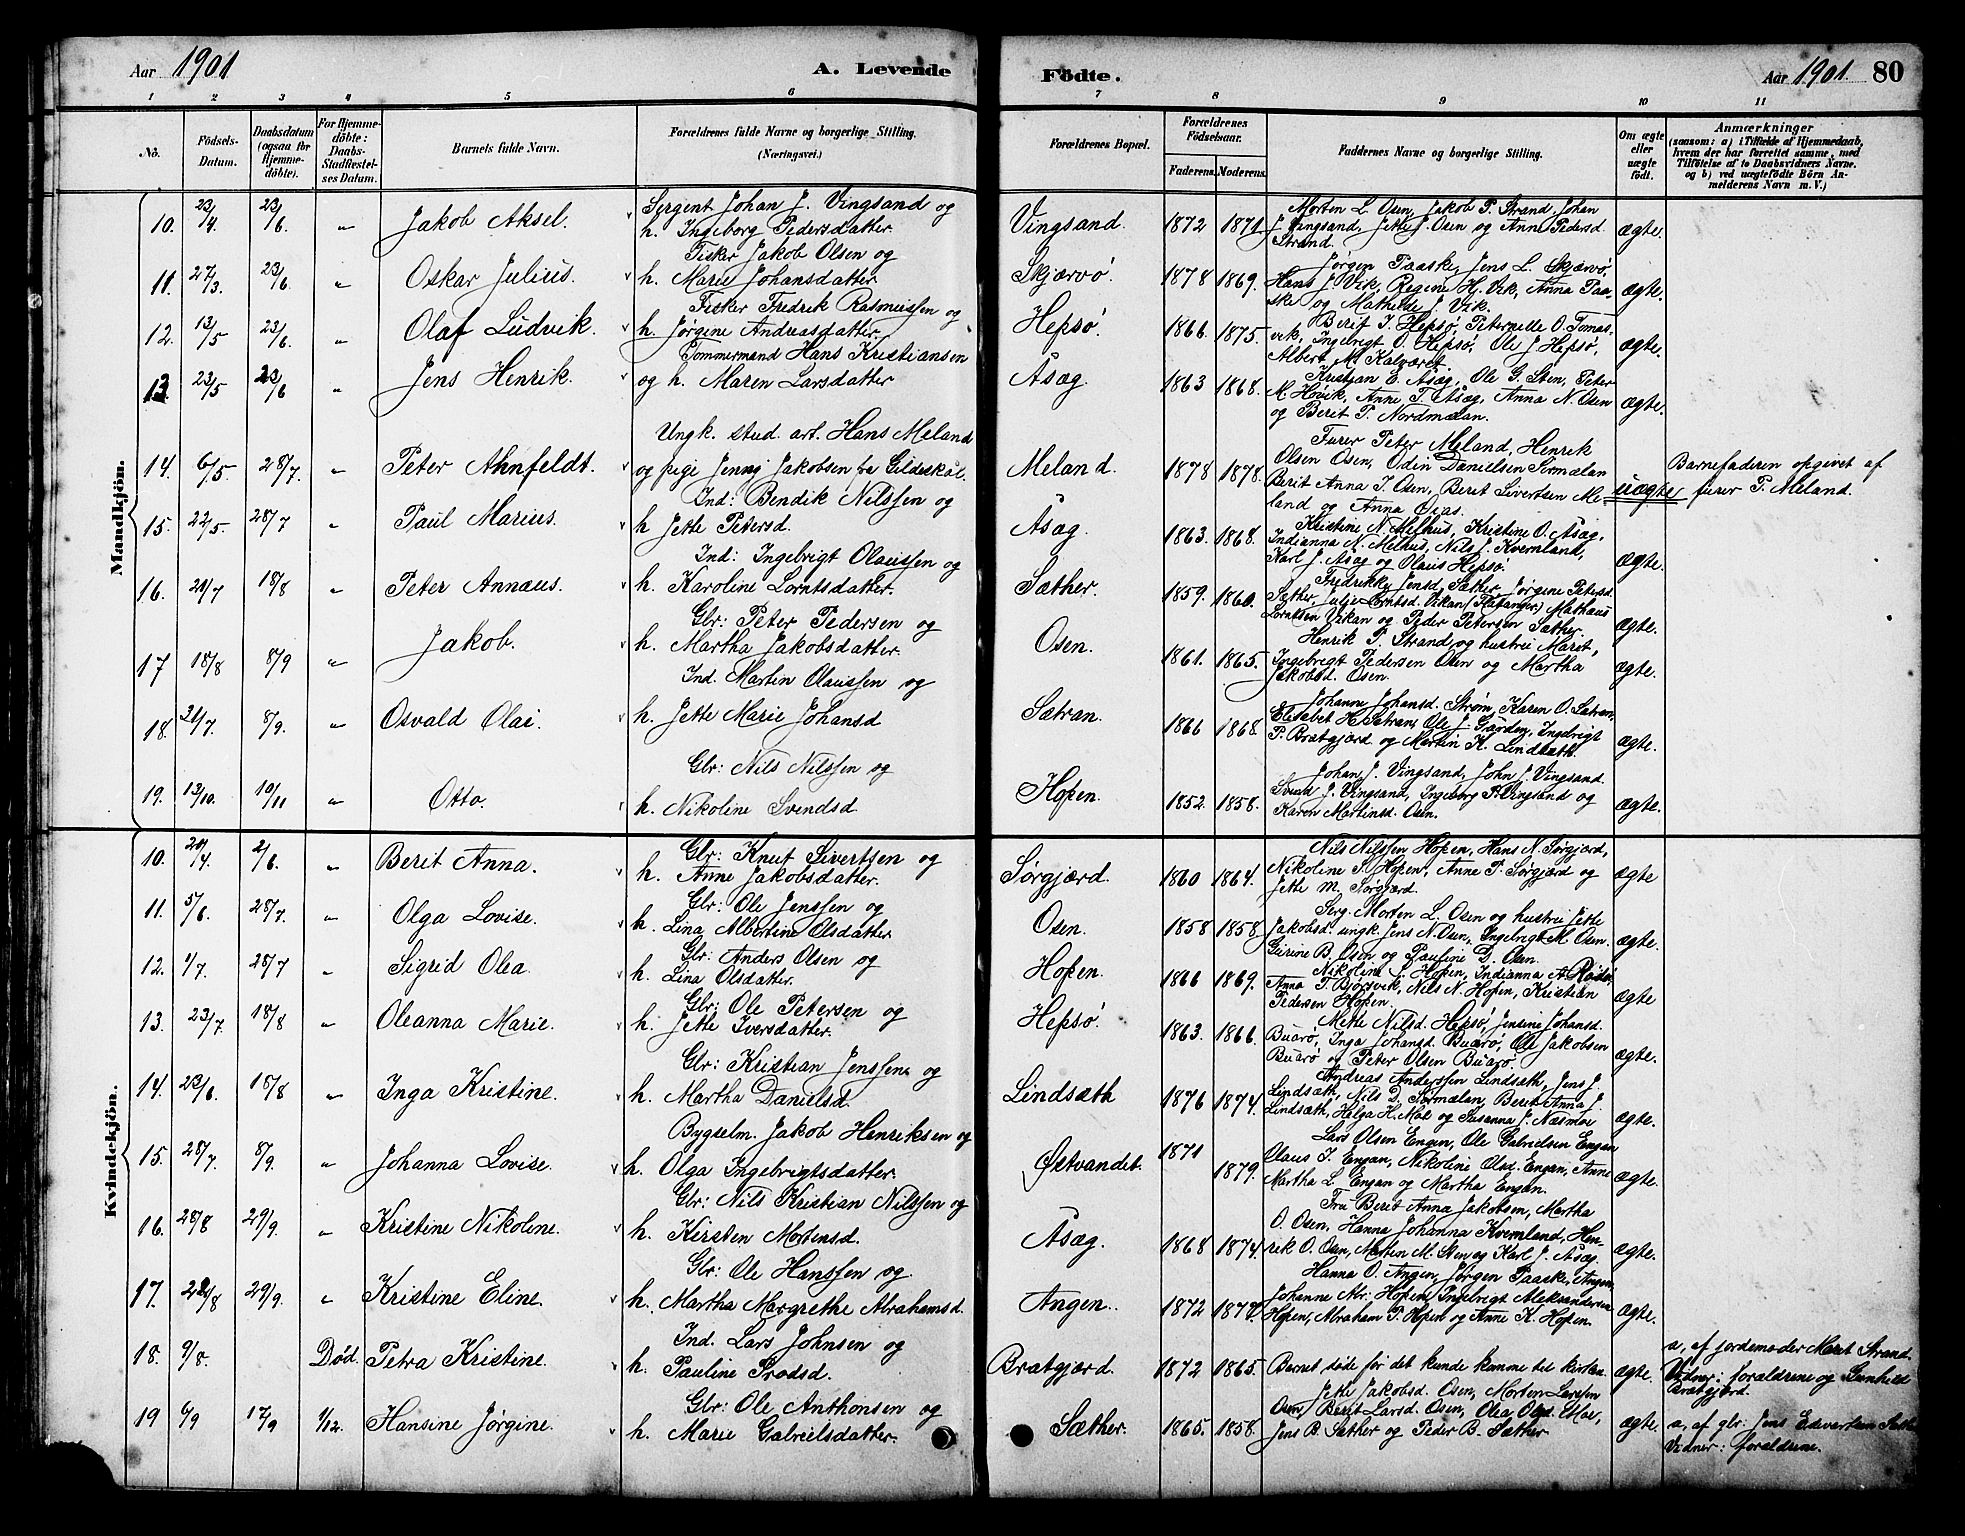 Aar 1901 A. Levende Fødte. Aar 1901. 80
1 2 3 4 5 6 7 8 9 10 11
No. Födsels-Datum. Daabsdatum (ogsaa for Hjemmedöbte). For Hjemmedöbte: Daabs-Stadfæstelses Datum. Barnets fulde Navn. Forældrenes fulde Navne og borgerlige Stilling. (Næringsvei.) Forældrenes Bopæl. Forældrenes Födselsaar. Faderens. Moderens. Faddernes Navne og borgerlige Stilling. Om ægte eller uægte födt. Anmærkninger (saasom: a) i Tilfælde af Hjemmedaab, hvem der har forrettet samme, med Tilföielse af to Daabsvidners Navne. og b) ved uægtefödte Börn Anmelderens Navn m. V.)
Mandkjön.
10. 23/4. 23/6. " Jakob Aksel. Sergent Johan J. Vingsand og
h. Ingeborg Pedersdatter. Vingsand. 1872 1871 Morten L. Osen, Jakob P. Strand, Johan
J. Vingsand, Jette J. Osen og Anne Pedersd.
Strand. ægte.
11. 27/3. 23/6. " Oskar Julius. Fisker Jakob Olsen og
h. Marie Johansdatter. Skjærvø. 1878 1869. Jørgen Paaske, Jens L. Skjærvø,
Hans J. Vik, Regine H. Vik, Anna Paa-
ske og Mathilde J. Vik. ægte.
12. 13/5 23/6. " Olaf Ludvik. Fisker Fredrik Rasmussen og
h. Jørgine Andreasdatter. Hepsø. 1866. 1875. Berit J. Hepsø, Peternelle O. Tomas-
vik, Ingebrigt O. Hepsø, Ole J. Hepsø,
Albert M. Kalværet. ægte.
13 23/5 23/6 " Jens Henrik. Tømmermand Hans Kristiansen
og h. Maren Larsdatter Åsæg. 1863 1868. Kristjan E. Åsæg, Ole G. Sten, Peter
M. Høvik, Anne T. Åsæg, Anna N. Osen
og Berit P. Nordmælan. ægte.
14. 6/5. 28/7. " Peter Ahnfeldt. Ungk. stud. art. Hans Meland
og pige Jenny Jakobsen fra Gildeskål. Meland. 1878 1878. Furer Peter Meland, Henrik
Olsen Osen, Odin Danielsen Sørmælan
Berit Anna J. Osen, Berit Sivertsen Me-
land og Anna Dias. uægte Barnefaderen opgivet af
furer P. Meland.
15. 22/5. 28/7 " Paul Marius. Ind: Bendik Nilssen og
h Jette Petersd. Åsæg. 1863. 1868. Kristine N. Melhus, Kristine O. Åsæg,
Indianna N. Melhus, Nils J. Kvernland,
Karl J. Åsæg og Olaus Hepsø ægte.
16. 21/7 18/8 " Peter Annæus. Ind: Ingebrigt Olaussen og
h. Karoline Lorntsdatter. Sæther. 1859. 1860. Fredrikke Jensd. Sæther, Jørgine Petersd.
Sæther, Julie Lorntsd. Vikan (Flatanger) Mathæus
Lorntsen Vikan og Peder Petersen Sæther. ægte.
17 18/8 8/9 " Jakob. Gbr: Peter Pedersen og
h. Martha Jakobsdatter. Osen. 1861. 1865. Henrik P. Strand og hustru Marit,
Ingebrigt Pedersen Osen og Martha
Jakobsd. Osen. ægte.
18. 21/7. 8/9. " Osvald Olai. Ind. Martin Olaussen og
h. Jette Marie Johansd Sætran. 1866 1868. Johanne Johansd. Strøm, Karen O. Sætran,
Elisabet H. Sætran, Ole J. Gården, Ingebrigt
P. Bratgjærd og Martin K. Lindsæth. ægte.
19. 13/10. 10/11 " Otto. Gbr: Nils Nilssen og
h. Nikoline Svendsd Hopen. 1852. 1858. Johan J. Vingsand, John J. Vingsand.
Svend J. Vingsand, Ingeborg P. Vingsand og
Karen Martinsd. Osen. ægte.
Kvindekjön.
10. 20/4. 2/6. " Berit Anna. Gbr: Knut Sivertsen og
h. Anne Jakobsdatter. Sørgjærd. 1860 1864. Nils Nilssen Hopen, Hans N. Sørgjærd,
Nikoline S. Hopen, Anne P. Sørgjærd og
Jette M. Sørgjærd. ægte
11. 5/6. 28/7. " Olga Lovise. Gbr: Ole Jenssen og
h. Lina Albertine Olsdatter. Osen. 1858 1858. Serg. Morten L. Osen og hustru Jette
Jakobsd. ungk. Jens N. Osen, Ingebrigt M. Osen.
Gurine B. Osen og Pauline D. Osen. ægte.
12. 1/7. 28/7 " Sigrid Olea. Gbr: Anders Olsen og
h. Lina Olsdatter. Hopen. 1866 1869. Nikoline S. Hopen, Indianna A. Rødsø,
Anna T. Bjørsvik, Nils N. Hopen, Kristian
Pedersen Hopen. ægte
13. 23/7. 18/8 " Oleanna Marie. Gbr: Ole Petersen og
h. Jette Iversdatter. Hepsø. 1863. 1866. Mette Nilsd. Hepsø, Jensine Johansd.
Buarø, Inga Johansd. Buarø, Ole Jakobsen
Buarø og Peter Olsen Buarø. ægte.
14. 23/6. 18/8 " Inga Kristine. Gbr: Kristian Jenssen og
h. Martha Danielsd. Lindsæth 1876 1874. Andreas Anderssen Lindsæth, Jens J.
Lindsæth, Nils D. Sørmælan, Berit Anna J.
Lindsæth, Helga H. Moe og Susanna J. Næsmoe ægte.
15. 28/7. 8/9. " Johanna Lovise. Bygselm. Jakob Henriksen og
h. Olga Ingebrigtsdatter. Østvandet. 1871 1879. Lars Olsen Engan, Ole Gabrielsen Engan
Olaus I. Engan, Nikoline Olsd. Engan, Anne
Martha L. Engan og Martha Engan. ægte.
16. 28/8 29/9. " Kristine Nikoline. Gbr: Nils Kristian Nilssen og
h. Kirsten Mortensd. Åsæg. 1868 1874. Fru Berit Anna Jakobsen, Martha
O. Osen, Hanna Johanna Kvernland, Hen-
rik O. Osen, Morten M. Sten og Karl J. Åsæg ægte.
17. 22/8 29/9. " Kristine Eline. Gbr: Ole Hanssen og
h. Martha Margrethe Abrahamsd. Angen. 1872 1877. Hanna O. Angen, Jørgen Paaske, Angen,
Johanne Abr. Hopen, Ingebrigt Aleksandersen
Hopen, Abraham P. Hopen og Anne K. Hopen. ægte.
18. 9/8. Død. Petra Kristine. Ind. Lars Johnsen og
h. Pauline Trodsd. Bratgjærd. 1872 1865. Barnet døde før det kunde komme til kirken ægte. a, af jordemoder Marit Strand.
Vidner: forældrene og Gunhild
Bratgjærd.
19 6/9 17/9 1/12. Hansine Jørgine. Gbr: Ole Anthonsen og
h. Marie Gabrielsdatter. Sæther. 1865. 1858. Jette Jakobsd. Osen, Morten Larssen
Osen, Berit Larsd. Osen, Olea Olsd. Moe,
Jens B. Sæther og Peder B. Sæther. ægte. a, af gbr: Jens Edvartsen
Vidner: forældrene.